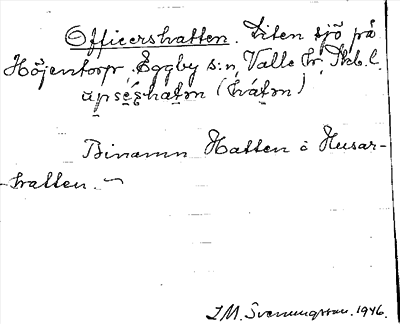 Officershatten. Liten sjö på
Höjentorp, Eggby s:n, Valle hd, Skb. l.
(hátn)
Binamn Hatten o Husar-
-hatten.
I.M. Svenungsson. 1946.